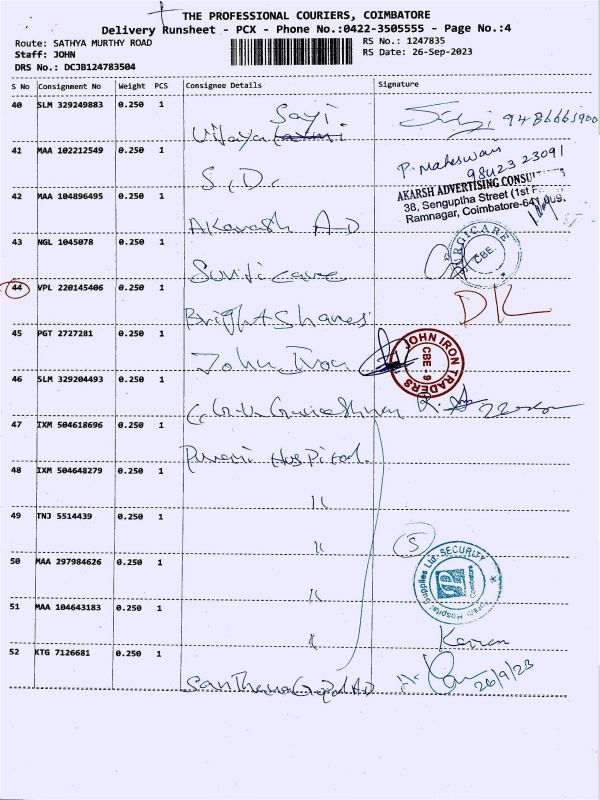 THE PROFESSIONAL COURIERS, COIMBATORE
Delivery Runsheet - PCX - Phone No.:0422-3505555 - Page No.:4
Route: SATHYA MURTHY ROAD
RS No.: 1247835
Staff: JOHN
RS Date: 26-Sep-2023
DRS No.: DCJB124783504
S No Consignment No Weight PCS Consignee Details Signature
40 SLM 329249883 0.250 1
Sayi
Vijaya
41 MAA 102212549 0.250 1
P. Maheswari
98423 23091
S.D.C
42 MAA 104896495 0.250 1
AKARSH ADVERTISING CONSU
38, Senguptha Street (1st F
Ramnagar, Coimbatore-641 009.
Akarash A-D
43 NGL 1045078 0.250 1
SURGICARE
CBE.
44 VPL 220145406 0.250 1
DK
45 PGT 2727281 0.250 1
John Iron
JOHN IRON TRADERS
CBE - 9
46 SLM 329204493 0.250 1
47 IXM 504618696 0.250 1
Hospital
48 IXM 504648279 0.250 1
"
49 TNJ 5514439 0.250 1
"
S
50 MAA 297984626 0.250 1
"
Hospital Supplies Ltd. SECURITY
Coimbatore
51 MAA 104643183 0.250 1
"
52 KTG 7126681 0.250 1
26/9/23